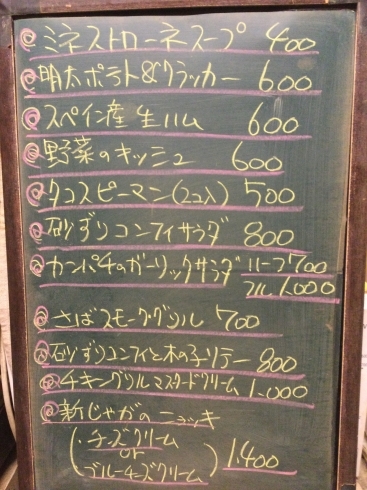 ミネストローネスープ 400
明太ポテト&クラッカー 600
スペイン産生ハム 600
野菜のキッシュ 600
タコスピーマン(2コ入) 500
砂ずりコンフィサラダ 800
カンパチのガーリックサラダ ハーフ700
フル1,000
さばスモークグリル 700
砂ずりコンフィと木の子ソテー 800
チキングリルマスタードクリーム 1,000
新じゃがのニョッキ
(・チーズクリーム
or
ブルーチーズクリーム) 1,400